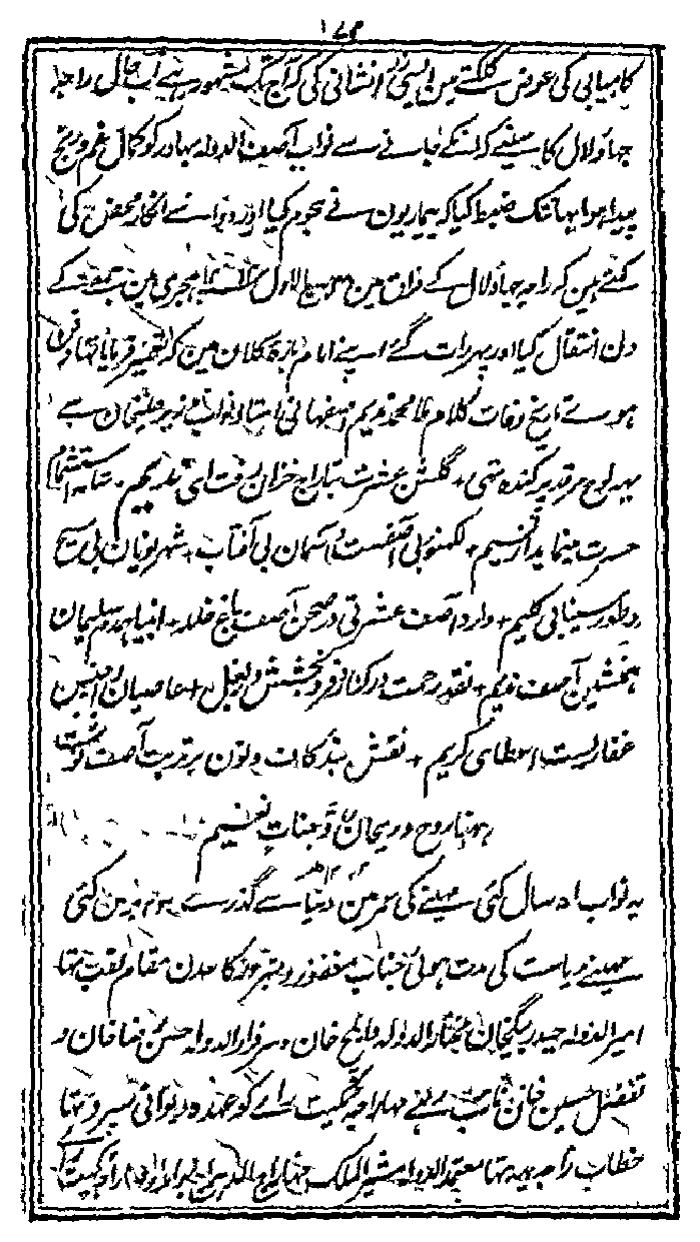 کامیابی کی عوض کلکتے مین ایسی زر افشانی کی کہ آج تک مشہور ہے اب حال راجہ
جهاؤلال کا سنیے کہ انکے جانے سے نواب آصف الدولہ بہادر کو کمال غم و رنج
پیدا ہوا یہانتک ضبط کیا کہ بیماریون نے ہجوم کیا اور دوا سے انکار محض کی
کہتے ہین کہ راجہ جهاؤلال کے فراق مین ربیع الاول ہجری مین جمعہ کے
دن انتقال کیا اور پہر رات گئے اپنے امام باڑہ کلان مین کہ تعمیر فرمایا تہا دفن
ہوے تاریخ وفات کلام ملا محمد اصفہانی استاد نواب وزیر علیخان ہے
یہہ لوح مرقد پر کندہ تہی + گلشن عشرت بتاراج خزان رفت ای ندیم +
حسرت مینماید از نسیم + لکهنو بی آصفست و آسمان بی آفتاب + شہر یونان بی مسیح
و طور سینا بی کلیم + وارد آصف عشرتی در صحن آصف باغ خلد + انبیا ہمدم سلیمان
ہمنشین آصف ندیم + نقد رحمت در کنار و فرد بخشش در بغل + عاصیان را
غفاریست اعطای کریم + نقش بر تربت آصف نوشت
روح و ریحان و جنات نعیم
یہ نواب سال کئی مہینے کی عمر مین دنیا سے گذرے برس کئی
مہینے ریاست کی مدت ہوئی جناب مغفور و مبرور کا عدن مقام لقب تہا
امیر الدولہ حیدر بیگخان و مختار الدولہ و ایلچ خان و سرفراز الدولہ حسن رضا خان و
تفضل حسین خان نائب رہے مہاراجہ ٹکیت راے کو عہدہ دیوانی سپرد تہا
خطاب راجہ یہہ تہا معتمد الدولہ مشیر الملک مہاراج